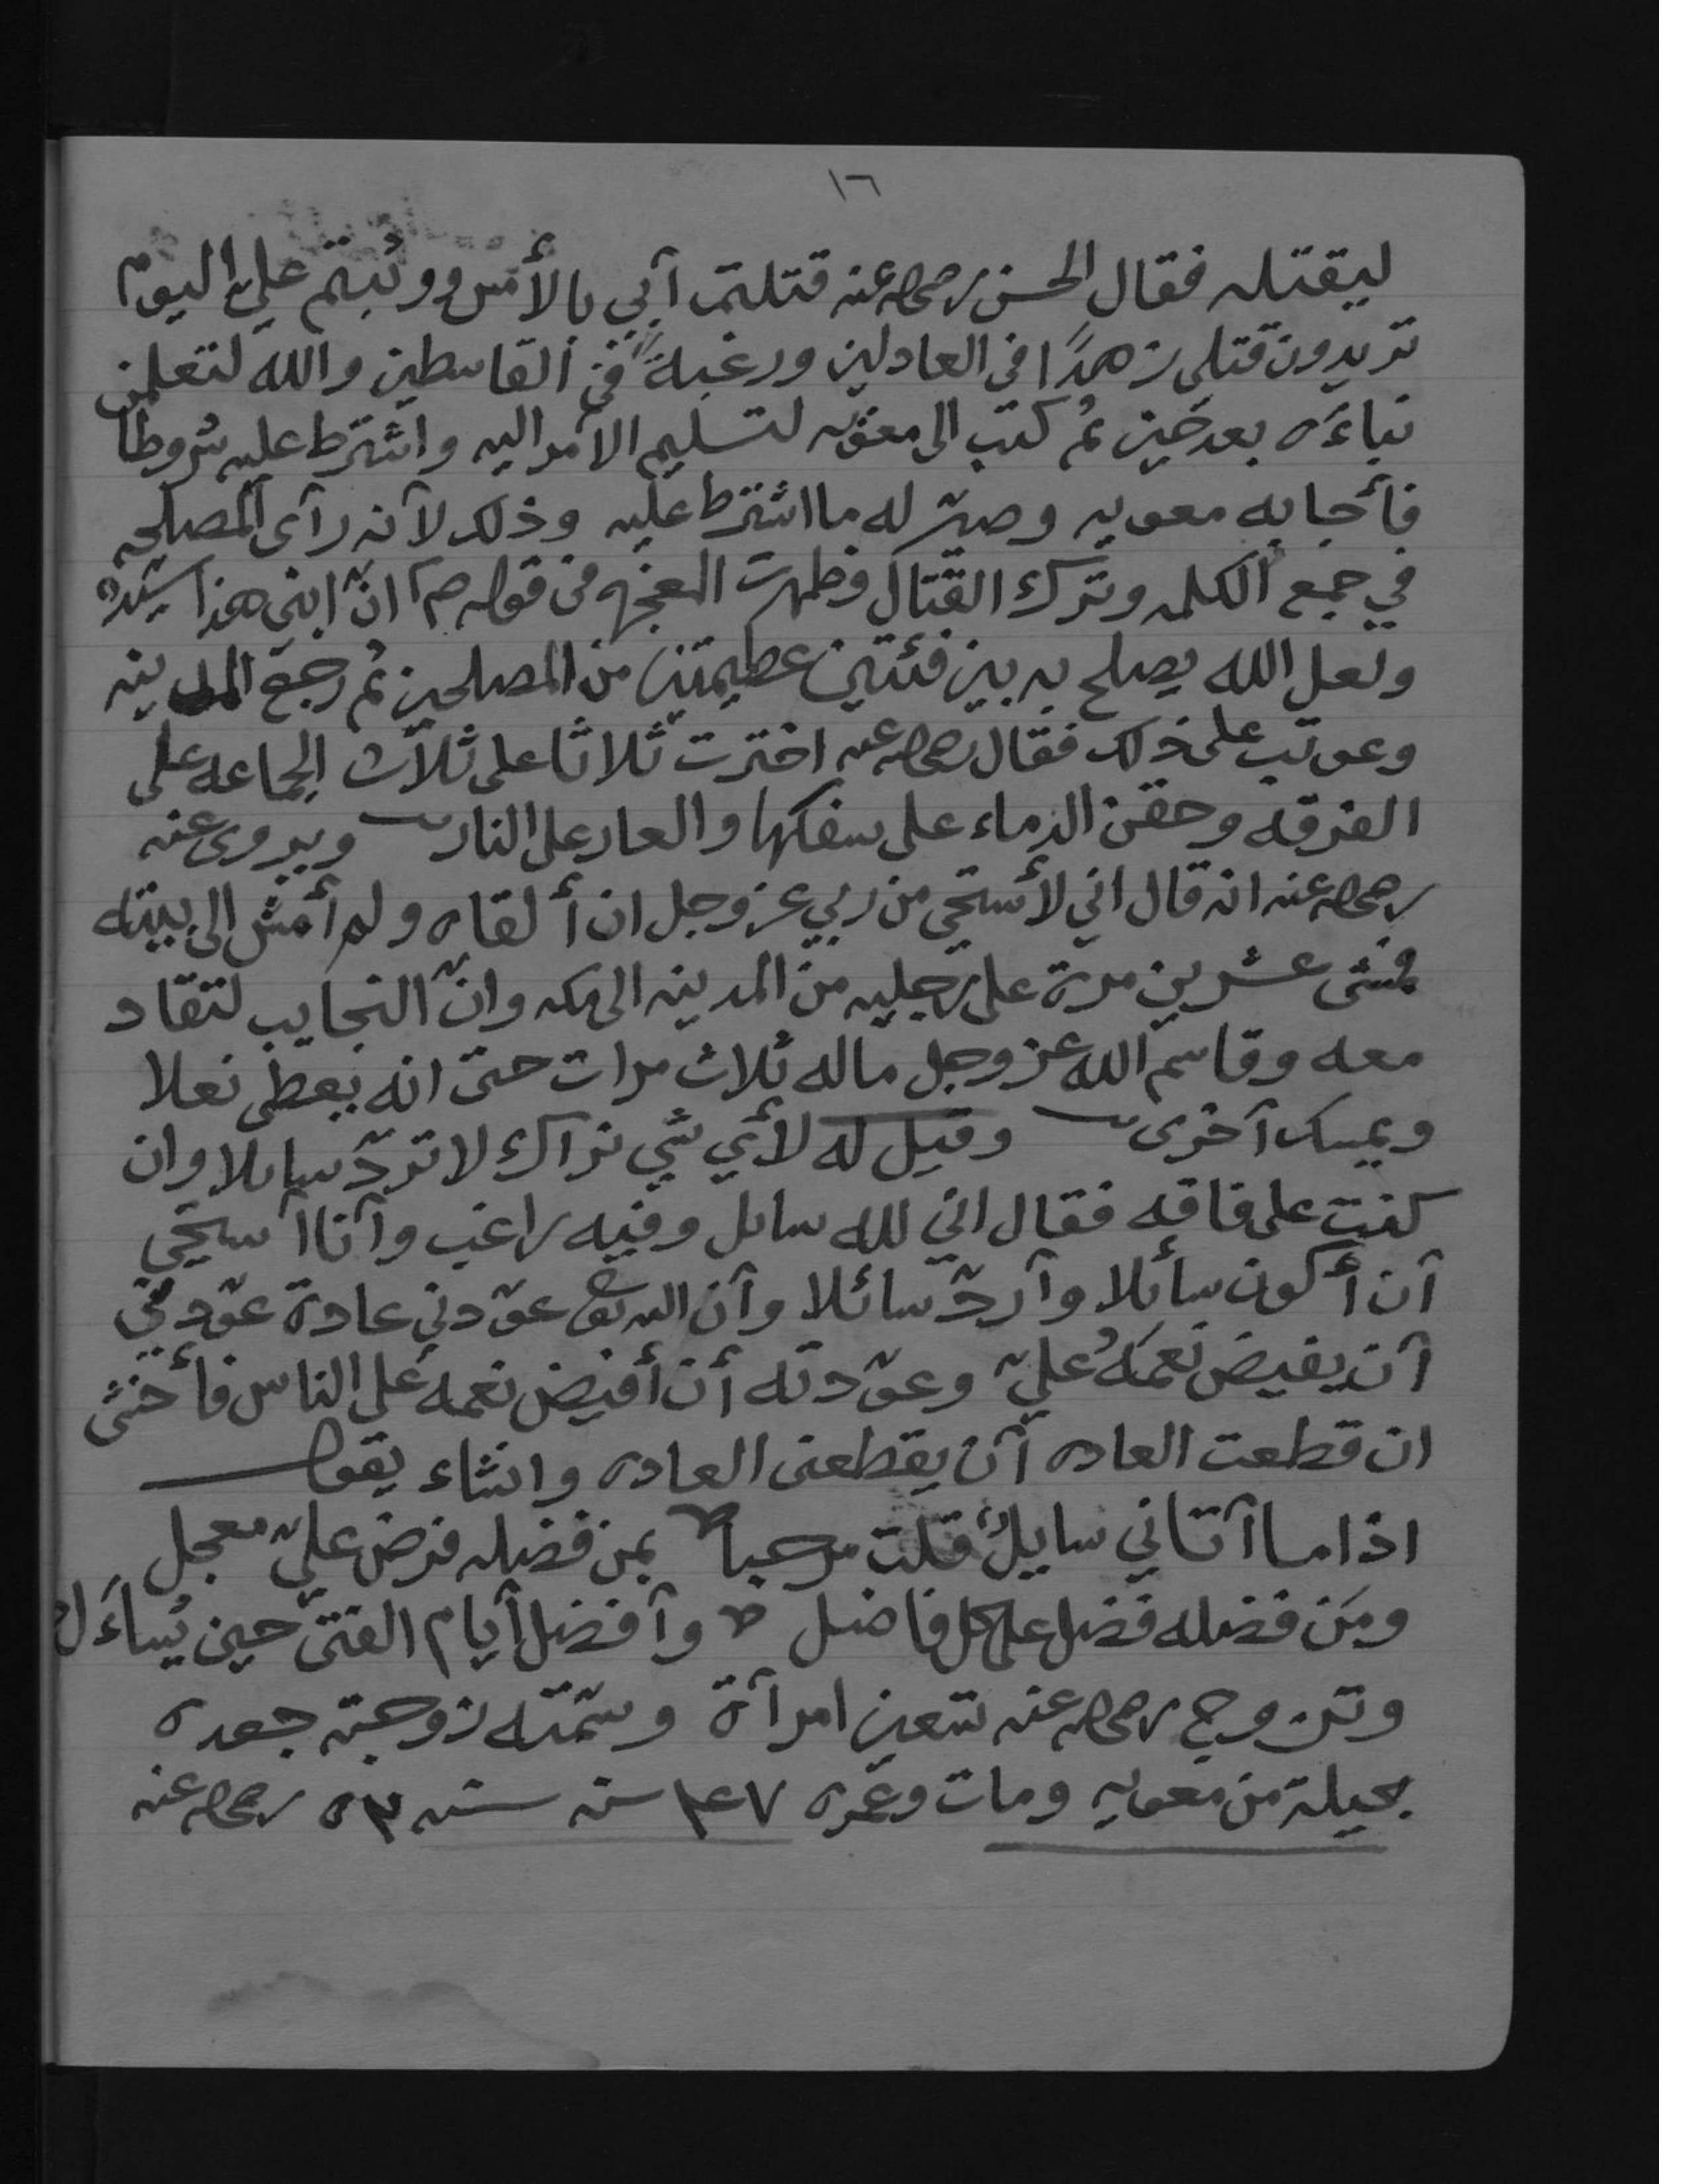 ١٦
ليقتله فقال الحسن رضي الله عنه قتلتم آبي بالأمس ووثبتم علي اليوم
تريدون قتلي زهدًا في العادلين ورغبةً في القاسطين والله لتعلمن
نباءَه بعد حين ثم كتب الى معويه لتسليم الآمر اليه واشترط عليه شروطاً
فأجابه معويه وصيّر له ما اشترط عليه وذلك لآنه رآى المصلحه
في جمع الكلمه وترك القتال وظهرت المعجزه في قوله صم انّ ابني هذا سيّد
ولعل الله يصلح به بين فئتين عظيمتين من المصلحين ثم رجع المدينه
وعوتب على ذلك فقال رضي الله عنه اخترت ثلاثا على ثلاث الجماعه على
الفرقه وحقن الدماء على سفكها والعار على النار ويروى عنه
رضي الله عنه انه قال اني لأستحي من ربي عز وجل ان ألقاه ولم أمش الى بيته
فمشى عشرين مرة على رجليه من المدينه الى مكه وانّ النجايب لتقاد
معه وقاسم الله عز وجل ماله ثلاث مرات حتى انه يعطي نعلا
ويمسك آخرى وقيل له لأي شي نراك لا تردّ سايلا وان
كنت على فاقه فقال اني لله سايل وفيه راغب وآنا آستحي
آن أكون سائلا وآردّ سائلا وآن الله تعالى عوّدني عادة عوّدني
آن يفيض نعمهُ عليّ وعوّدته أن أفيض نعمه على الناس فأخشى
ان قطعت العاده آن يقطعنى العاده وانشاء يقول
اذا ما آتاني سايلٌ قلت مرحبا بمن فضله فرض عليّ معجل
ومَن فضله فضل على كل فاضل وآفضل آيام الفتى حين يُساءَل
وتزوج رضي الله عنه تسعين امرآة وسمّته زوجته جعده
بحيلة من معويه ومات وعمره ٤٧ سنه سنه ٥٣ رضي الله عنه